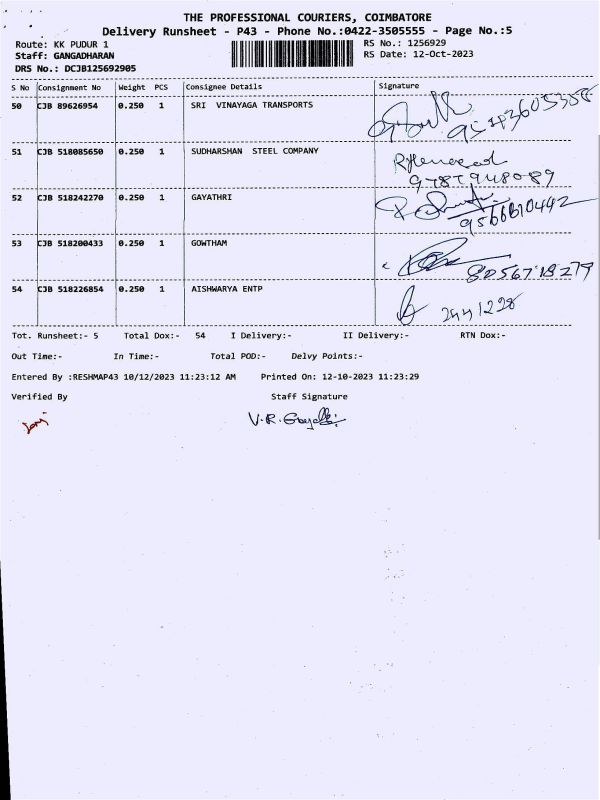 THE PROFESSIONAL COURIERS, COIMBATORE
Delivery Runsheet - P43 - Phone No.:0422-3505555 - Page No.:5
Route: KK PUDUR 1 RS No.: 1256929
Staff: GANGADHARAN RS Date: 12-Oct-2023
DRS No.: DCJB125692905
S No Consignment No Weight PCS Consignee Details Signature
50 CJB 89626954 0.250 1 SRI VINAYAGA TRANSPORTS
9543605358
51 CJB 518085650 0.250 1 SUDHARSHAN STEEL COMPANY
9787948089
52 CJB 518242270 0.250 1 GAYATHRI
9566610442
53 CJB 518200433 0.250 1 GOWTHAM
8056718279
54 CJB 518226854 0.250 1 AISHWARYA ENTP
2441228
Tot. Runsheet:- 5 Total Dox:- 54 I Delivery:- II Delivery:- RTN Dox:-
Out Time:- In Time:- Total POD:- Delvy Points:-
Entered By :RESHMAP43 10/12/2023 11:23:12 AM Printed On: 12-10-2023 11:23:29
Verified By Staff Signature
V.R.